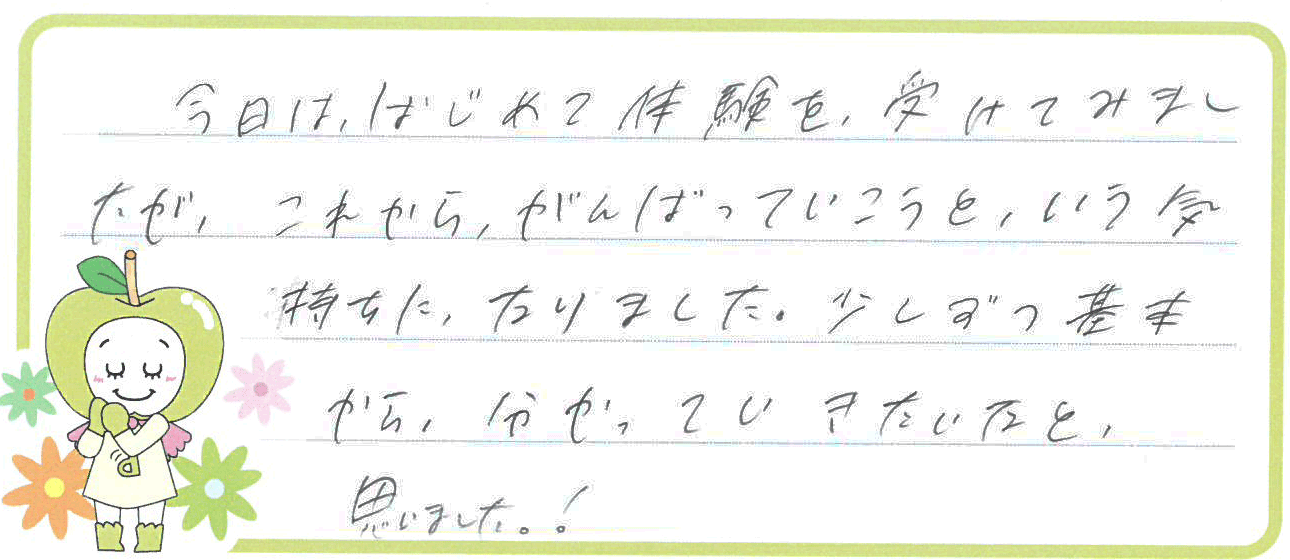 今日は,はじめて体験を,受けてみまし
たが, これから,がんばっていこうと,いう気
持ちに,なりました。少しずつ基本
から,分かっていきたいなと,
思いました。!